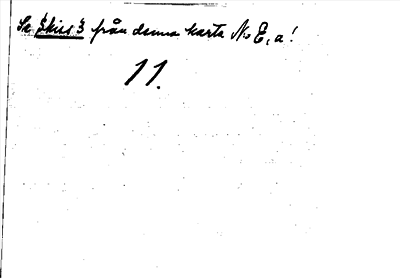 Se skiss 3 från denna karta N.E,a!
11.